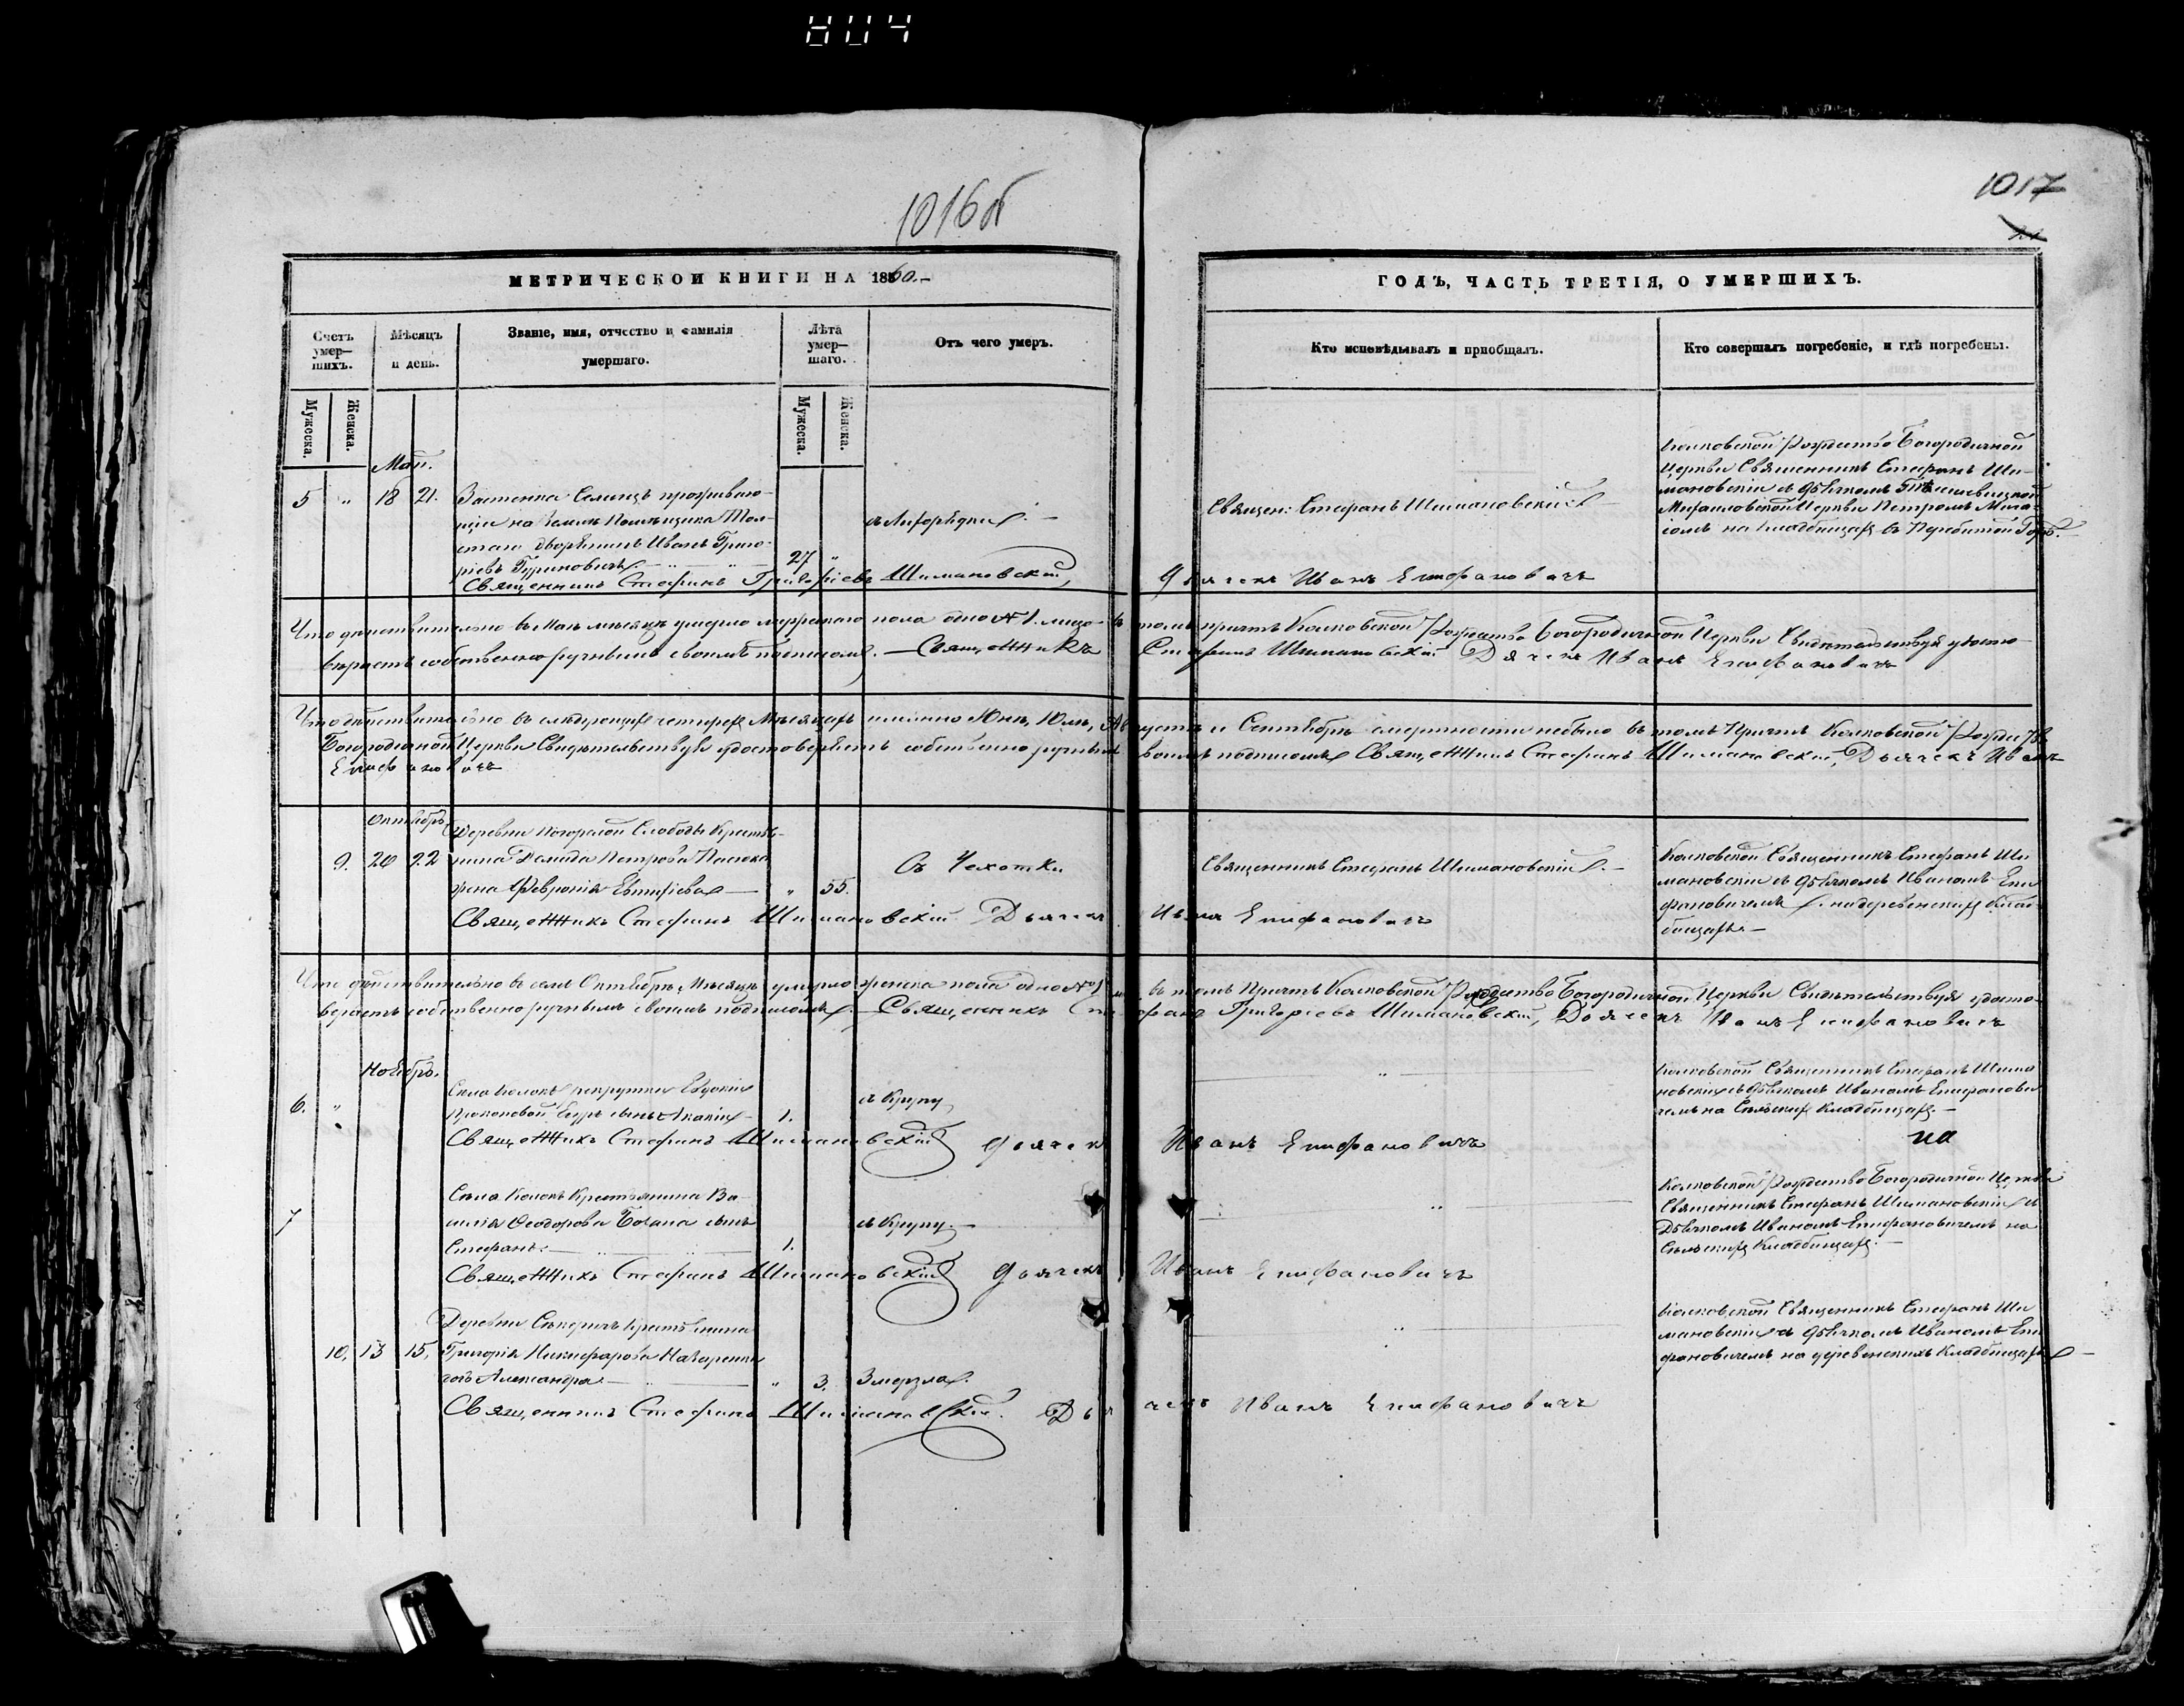 1016б
1017
МЕТРИЧЕСКОЙ КНИГИ НА 1860.–
ГОДЪ, ЧАСТЬ ТРЕТІЯ, О УМЕРШИХЪ.
Счетъ умер– шихъ.
Мѣсяцъ и день.
Званіе, имя, отчество и фамилія умершаго.
Лѣта умер– шаго.
Отъ чего умеръ.
Кто исповѣдывалъ и пріобщалъ.
Кто совершалъ погребеніе, и гдѣ погребены.
Мужеска.
Женска.
Мужеска.
Женска.
Май.
5 „ 18 21.
Застенка Селищъ проживаю-
щій на земли Помѣщика Тол-
стаго дворянинъ Иванъ Григо-
ріевъ Гуриновичъ
27 „
Священ: Стефанъ Шимановскій
Рождество Богородичной
Церкви Священникъ Стефанъ Ши-
мановскій съ дьячкомъ
Михаиловской Церкви Петромъ
на кладбищахъ въ
Священникъ Стефанъ Григоріевъ Шимановскій Дьячекъ Иванъ Епифановичъ
Что дѣйствительно въ Маѣ мѣсяцѣ умерло мужескаго пола одно № 1. лицо въ томъ причтъ Колковской Рождество Богородичной Церкви Свидѣтельствуя удосто-
вѣряетъ собственноручнымъ своимъ подписомъ.— Священникъ Стефанъ Шимановскій Дьячекъ Иванъ Епифановичъ
Что дѣйствительно въ слѣдующихъ четырехъ Мѣсяцахъ именно Юнѣ, Юлѣ, Августѣ и Сентябрѣ смертности небыло въ томъ Причтъ Колковской Рождество
Богородичной Церкви Свидѣтельствуя удостоверяетъ собственноручнымъ своимъ подписомъ Священникъ Стефанъ Шимановскій, Дьячекъ Иванъ
Епифановичъ
Октябрь
9. 20 22
Деревни Погорелой Слободы Крестья-
нина Демида Петрова
жена Феврония
„ 55.
Съ Чахотки
Священникъ Стефанъ Шимановскій.–
Колковской Священникъ Стефанъ Ши
мановскій съ дьячкомъ Иваномъ Епи
фановичемъ на деревенскихъ клад-
бищахъ.–
Священникъ Стефанъ Шимановскій Дьячекъ Иванъ Епифановичъ
Что дѣйствительно въ семъ Октябрѣ Мѣсяцѣ умерло женска пола одно № 1 въ томъ Причтъ Колковской Рождество Богородичной Церкви Свидѣтельствуя удосто-
веряетъ собственноручнымъ своимъ подписомъ.— Священникъ Стефанъ Григоріевъ Шимановскій, Дьячекъ Иванъ Епифановичъ
Ноябрь.
6. „
Села Колокъ рекрутки Евдокіи
сынъ
1.
съ Крупу
Колковской Священникъ Стефанъ Шима
новскій съ дьячкомъ Иваномъ Епифанови
чемъ на Сельскихъ Кладбищахъ.–
Священникъ Стефанъ Шимановскій Дьячекъ Иванъ Епифановичъ
на
7
Села Колокъ Крестьянина Ва-
силія Феодорова сынъ
Стефанъ.
1.
съ Крупу.–
Колковской Рождество Богородичной Церкви
Священникъ Стефанъ Шимановскій съ
Дьячкомъ Иваномъ Епифановичемъ на
Сельскихъ Кладбищахъ.–
Священникъ Стефанъ Шимановскій Дьячекъ Иванъ Епифановичъ
10. 13 15.
Деревни Секеричъ Крестьянина
Григорія Никифарова Назаренки
дочь Александра
„ 3.
Колковской Священникъ Стефанъ Ши
мановскій съ дьячкомъ Иваномъ Епи
фановичемъ на деревенскихъ Кладбищахъ
Священникъ Стефанъ Шимановскій. Дьячекъ Иванъ Епифановичъ